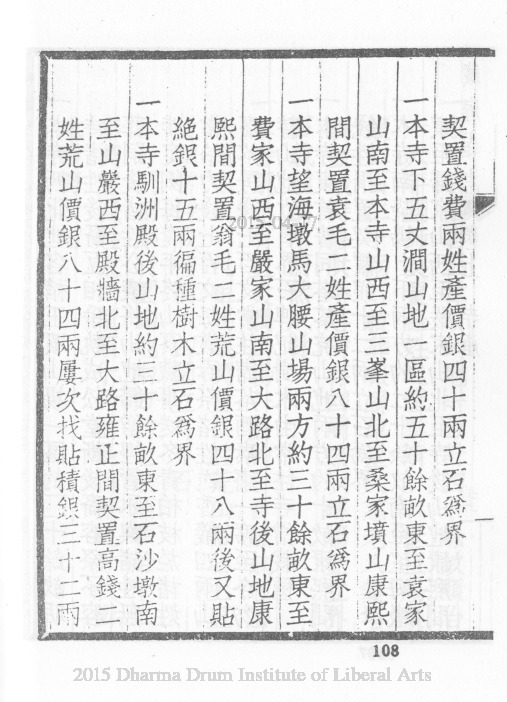 契置錢費兩姓產價銀四十兩立石爲界
一本寺下五丈澗山地一區約五十餘畝東至袁家
山南至本寺山西至三峯山北至桑家墳山康熙
間契置袁毛二姓產價銀八十四兩立石爲界
一本寺望海墩馬大腰山場兩方約三十餘畝東至
費家山西至嚴家山南至大路北至寺後山地康
熙間契置翁毛二姓荒山價銀四十八兩後又貼
絶銀十五兩徧種樹木立石爲界
一本寺馴洲殿後山地約三十餘畝東至石沙墩南
至山嚴西至殿牆北至大路雍正間契置高錢二
姓荒山價銀八十四兩屢次找貼積銀三十二兩
108
2015 Dharma Drum Institute of Liberal Arts